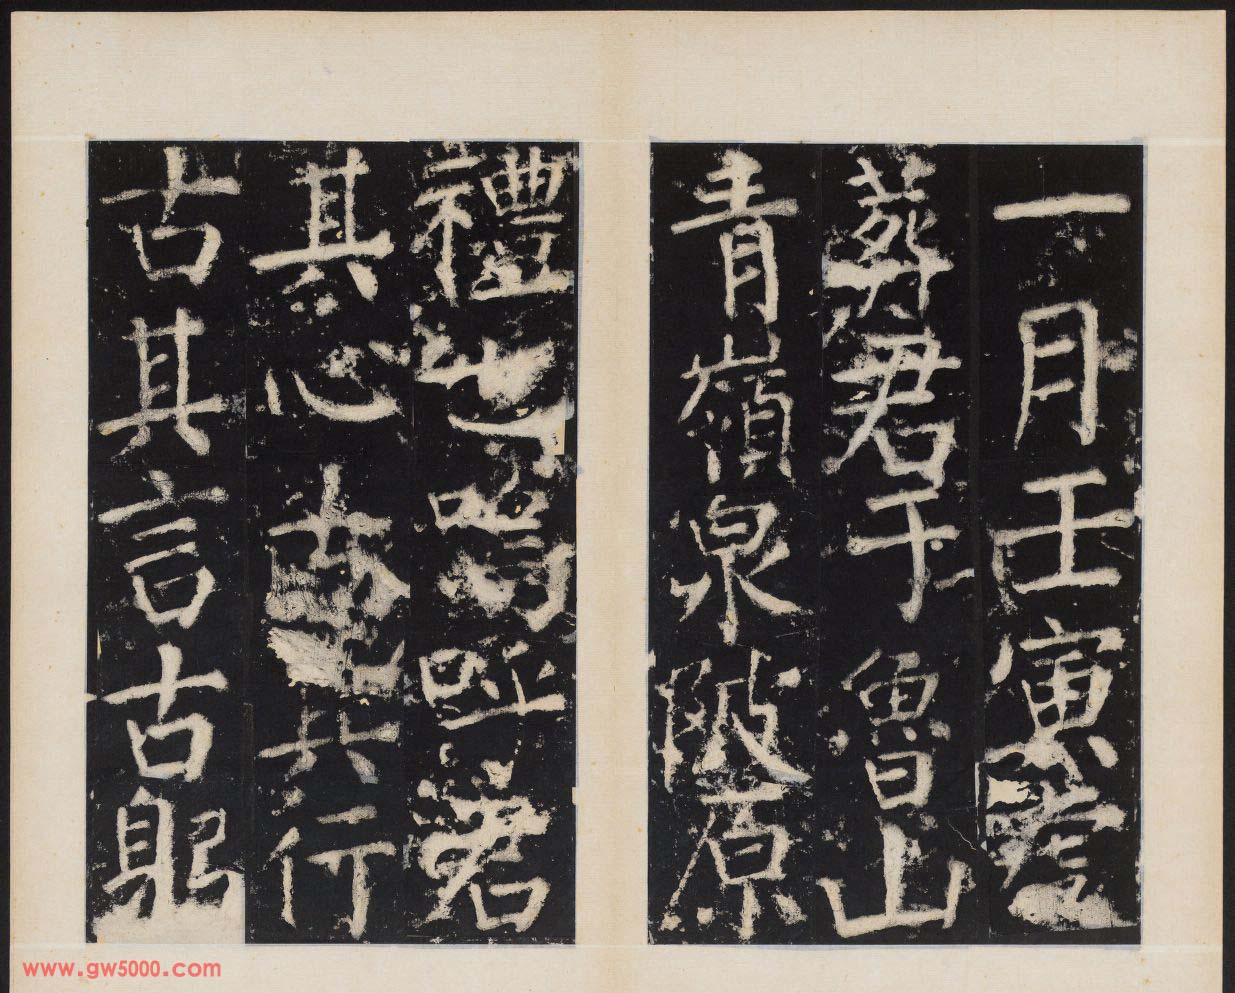 一月壬寅窆
葬君于魯山
青嶺泉陂原
禮也嗚呼君
其心古其行
古其言古躬
www.gw5000.com